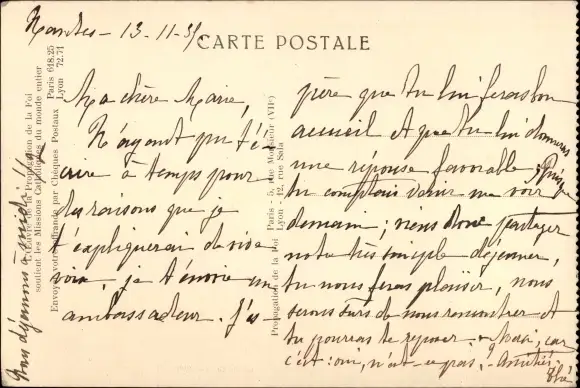 Nantes - 13-11-35.
CARTE POSTALE
Ma chère Marie,
N'ayant pu t'é-
crire à temps pour
les raisons que je
t'expliquerai de vive
voix, je t'envoie un
ambassadeur. J'es-
père que tu lui feras bon
accueil et que tu lui donneras
une réponse favorable. Puisque
tu comptais venir me voir
demain ; viens donc partager
notre très simple déjeuner,
tu nous feras plaisir, nous
serons sûrs de nous rencontrer et
tu pourras te reposer. Merci, car
c'est : oui, n'est-ce pas ? Amitiés
Nous déjeunons à midi 1/2
L'Œuvre de la Propagation de la Foi
soutient les Missions Catholiques du monde entier
Envoyez votre offrande par Chèques Postaux Paris 618.25
Lyon 72.71
Propagation de la Foi Paris - 5, rue Monsieur (VIIe)
Lyon - 12, rue Sala